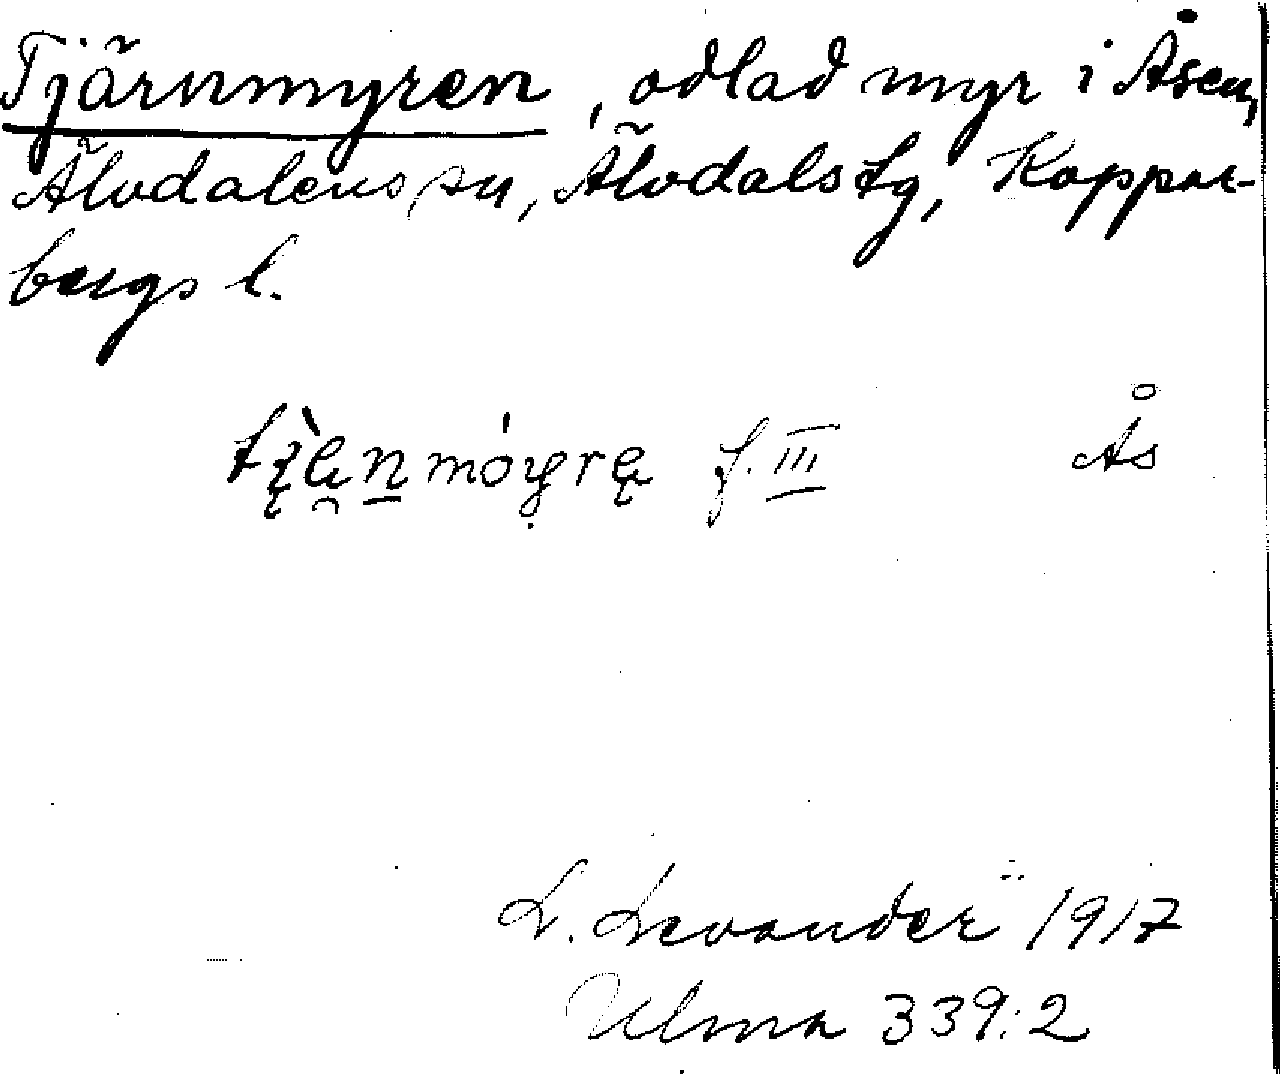 Tjärnmyren, odlad myr i Åsen,
Älvdalens sn, Älvdals tg, Koppar-
bergs l.
f. III Ås
L. Levander 1917
Ulma 339:2